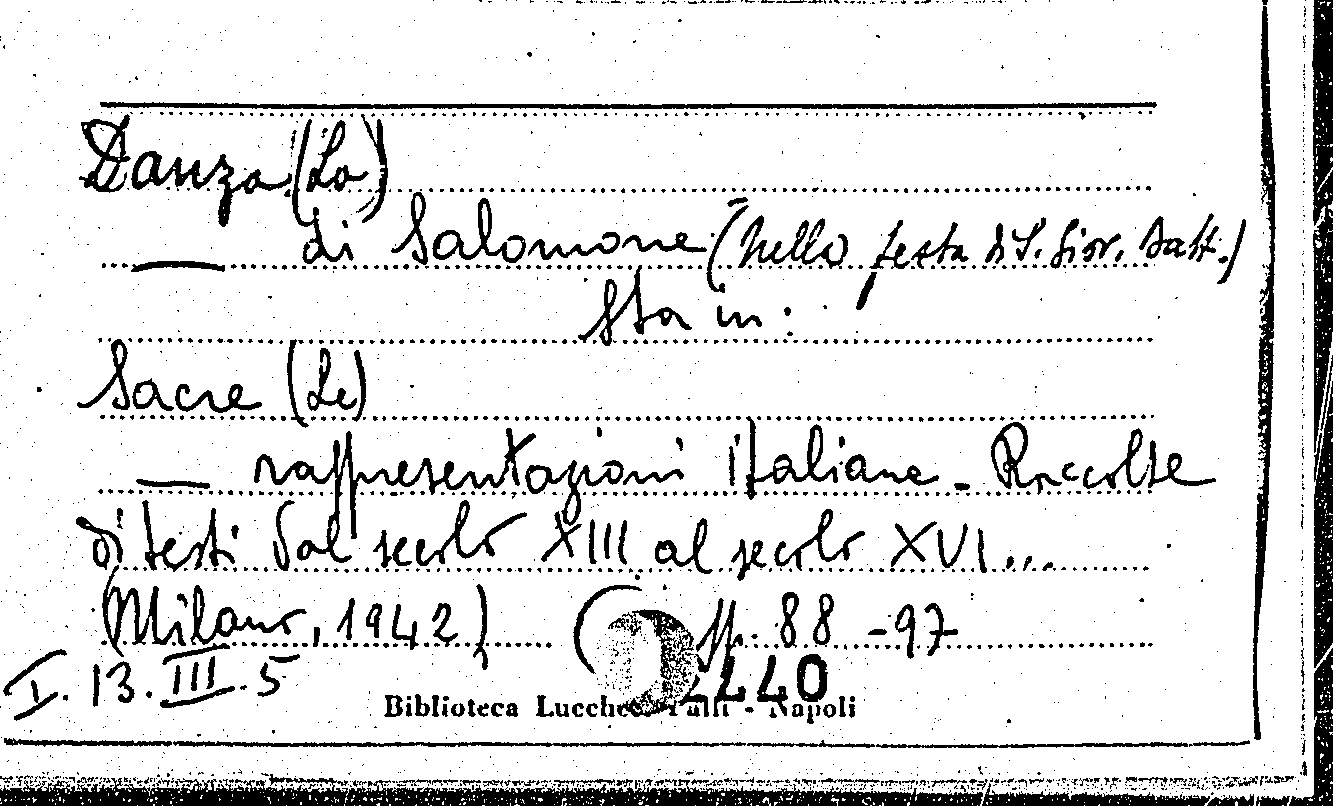 Danza (La)
— di Salomone (Nella festa di S. Giov. Batt.)
Sta in:
Sacre (Le)
— rappresentazioni italiane - Raccolte
di testi dal secolo XIII al secolo XVI...
(Milano, 1942) ( pp. 88 - 97
I. 13. III. 5
Biblioteca - Napoli